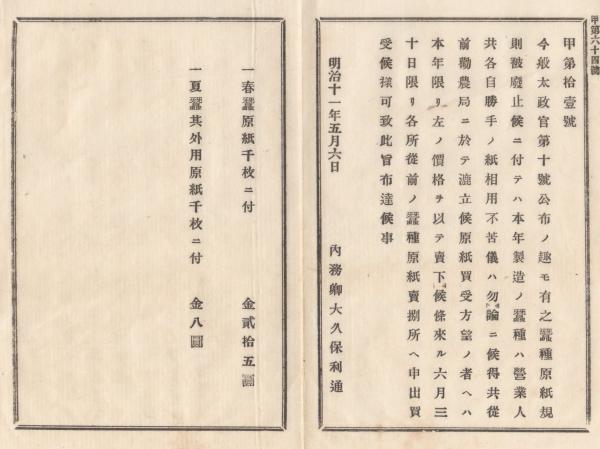 甲第六十四號
甲第拾壹號
今般太政官第十號公布ノ趣モ有之蠶種原紙規
則被廢止候ニ付テハ本年製造ノ蠶種ハ營業人
共各自勝手ノ紙相用不苦儀ハ勿論ニ候得共從
前勸農局ニ於テ漉立候原紙買受方望ノ者ヘハ
本年限リ左ノ價格ヲ以テ賣下候條來ル六月三
十日限リ各所從前ノ蠶種原紙賣捌所ヘ申出買
受候樣可致此旨布達候事
明治十一年五月六日
內務卿大久保利通
一春蠶原紙千枚ニ付 金貳拾五圓
一夏蠶其外用原紙千枚ニ付 金八圓